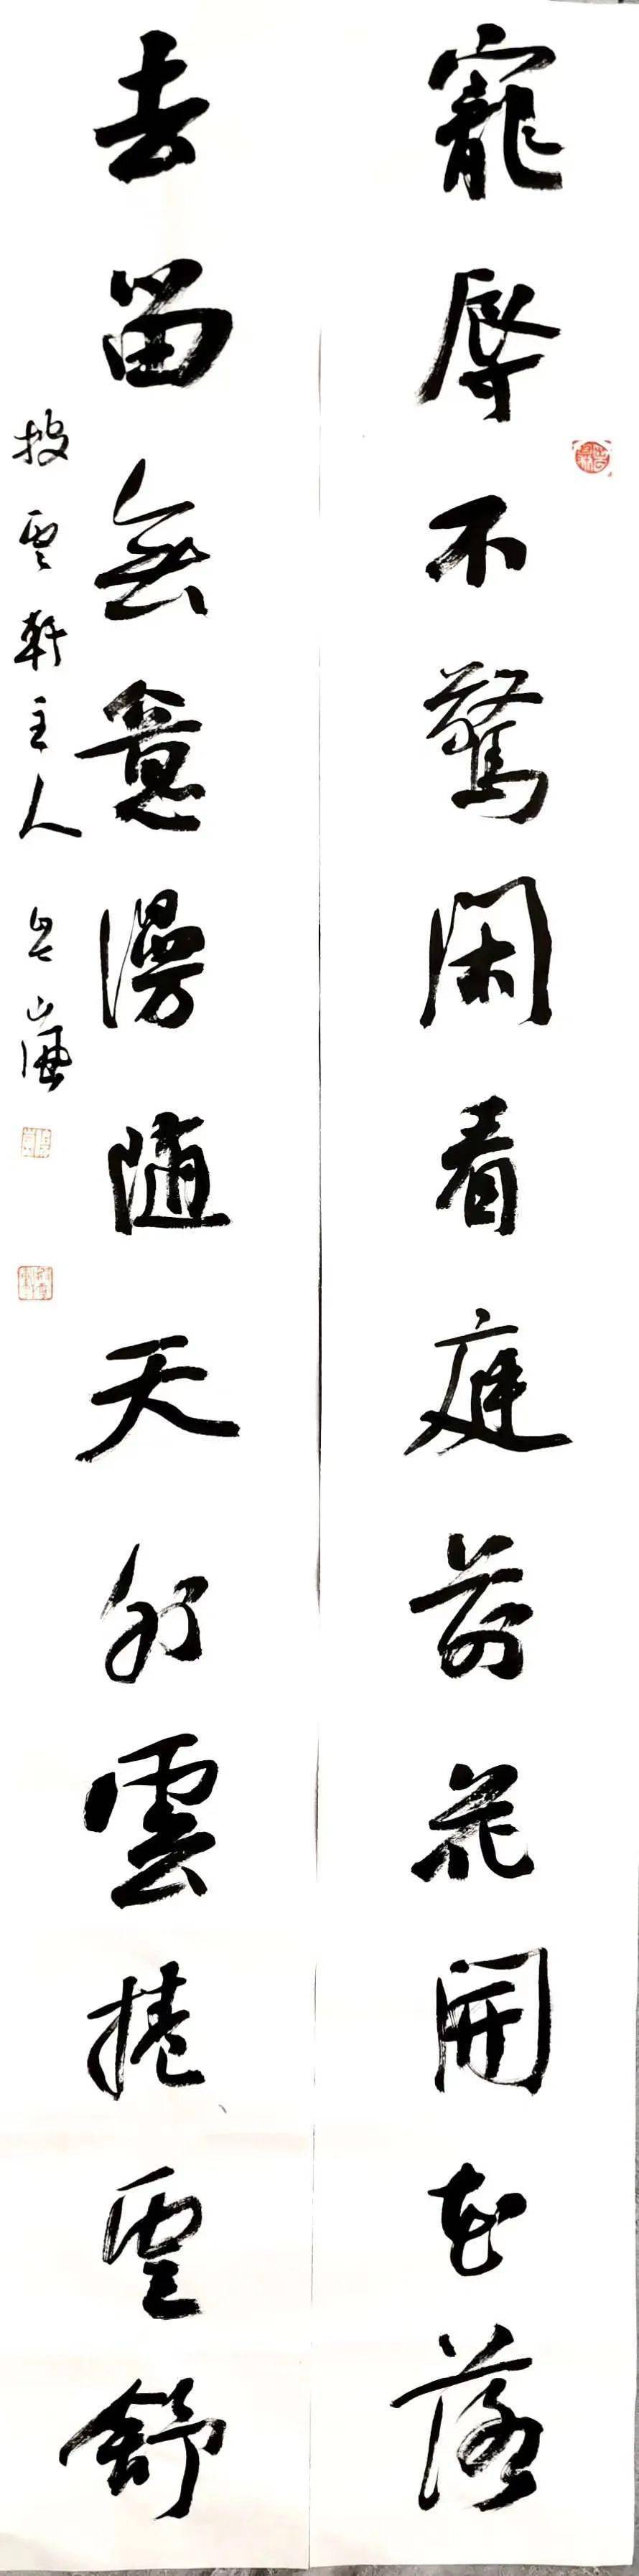 寵辱不驚閑看庭前花開花落
去留無意漫隨天外雲捲雲舒
披雲軒主人